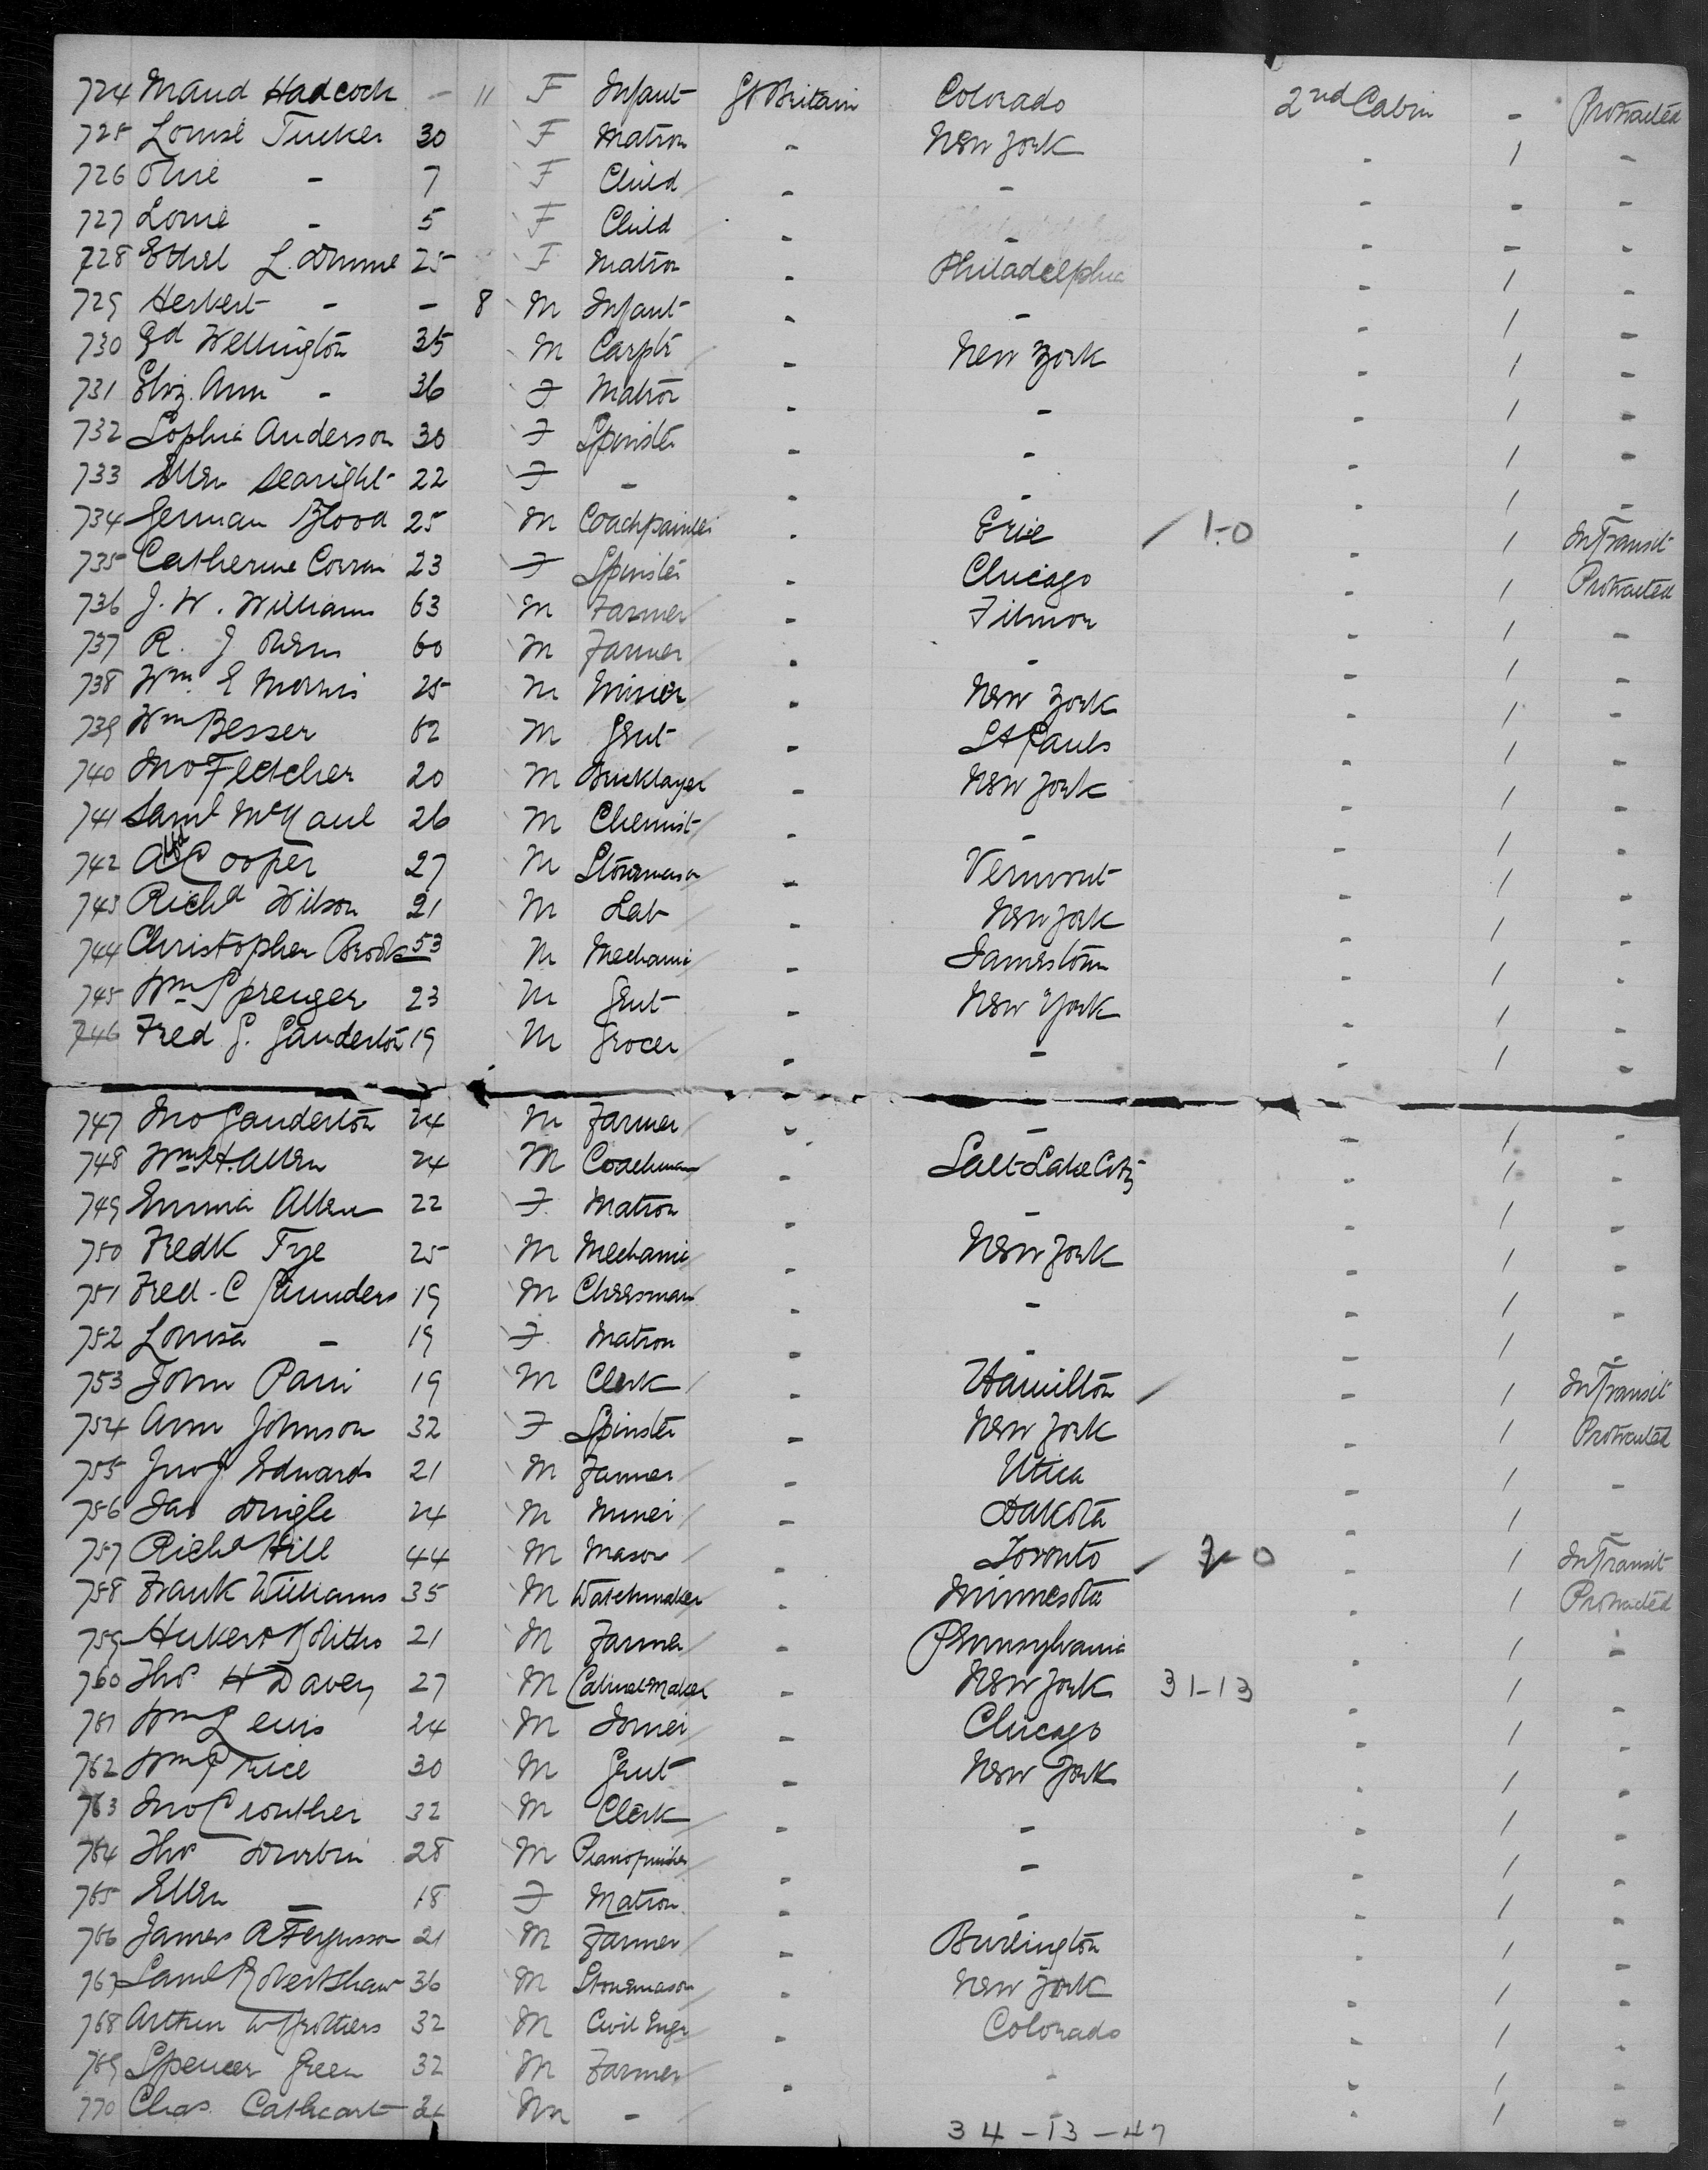 724 Maud Hadcock - 11 F Infant Gt Britain Colorado 2nd Cabin - Protracted
725 Louise Tucker 30 F Matron - New York - 1 -
726 Olive - 7 F Child - - - - -
727 - 5 F Child - - - - -
728 Ethel L. 25 F Matron - Philadelphia - 1 -
729 Herbert - - 8 M Infant - - - 1 -
730 Ed Wellington 35 M Carptr - New York - 1 -
731 Eliz. Ann - 36 F Matron - - - 1 -
732 Sophia Anderson 30 F Spinster - - - 1 -
733 Ellen Searight 22 F - - - - 1 -
734 German Blood 25 M Coachpainter - Erie / 1-0 - 1 InTransit
735 Catherine 23 F Spinster - Chicago - 1 Protracted
736 J. W. Williams 63 M Farmer - Filmor - 1 -
737 R. J 60 M Farmer - - - 1 -
738 Wm. E Morris 25 M Miner - New York - 1 -
739 Wm Besser 62 M Gent - St Pauls - 1 -
740 Jno Fletcher 20 M Bricklayer - New York - 1 -
741 Saml 26 M Chemist - - - 1 -
742 Cooper 27 M Stonemason - Vermont - 1 -
743 Richd Wilson 21 M Lab - New York - 1 -
744 Christopher Brooks 53 M Mechanic - Jamestown - 1 -
745 Wm Sprenger 23 M Gent - New York - 1 -
746 Fred G. Ganderton 19 M Grocer - - - 1 -
747 Jno Ganderton 24 M Farmer - - - 1 -
748 Wm H. Allen 24 M Coachman - Salt Lake City - 1 -
749 Emma Allen 22 F Matron - - - 1 -
750 Fredk Frye 25 M Mechanic - New York - 1 -
751 Fred. C Saunders 19 M - - - 1 -
752 Louisa - 19 F Matron - - - 1 -
753 John 19 M Clerk - Hamilton / - 1 InTransit
754 Ann Johnson 32 F Spinster - New York - 1 Protracted
755 Jno J Edwards 21 M Farmer - Utica - 1 -
756 Jas Dingle 24 M Miner - Dakota - 1
757 Richd Hill 44 M Mason - Toronto / - 1 InTransit
758 Frank Williams 35 M Watchmaker - Minnesota - 1 Protracted
759 21 M Farmer - Pennsylvania - 1 -
760 Thos H Davey 27 M Cabinetmaker - New York 31-13 - 1 -
761 Wm Lewis 24 M Joiner - Chicago - 1 -
762 Wm Price 30 M Gent - New York - 1 -
763 Jno Crouther 32 M Clerk - - - 1 -
764 Thos Durbin 28 M - - - 1 -
765 Ellen - 18 F Matron - - - 1 -
766 James A Fergusson 21 M Farmer - Burlington - 1 -
767 Saml Robertshaw 36 M Stonemason - New York - 1 -
768 Arthur W 32 M Civil Engr - Colorado - 1 -
769 Spencer Green 32 M Farmer - - - 1 -
770 Chas. Cathcart M - - 1 -
34-13-47